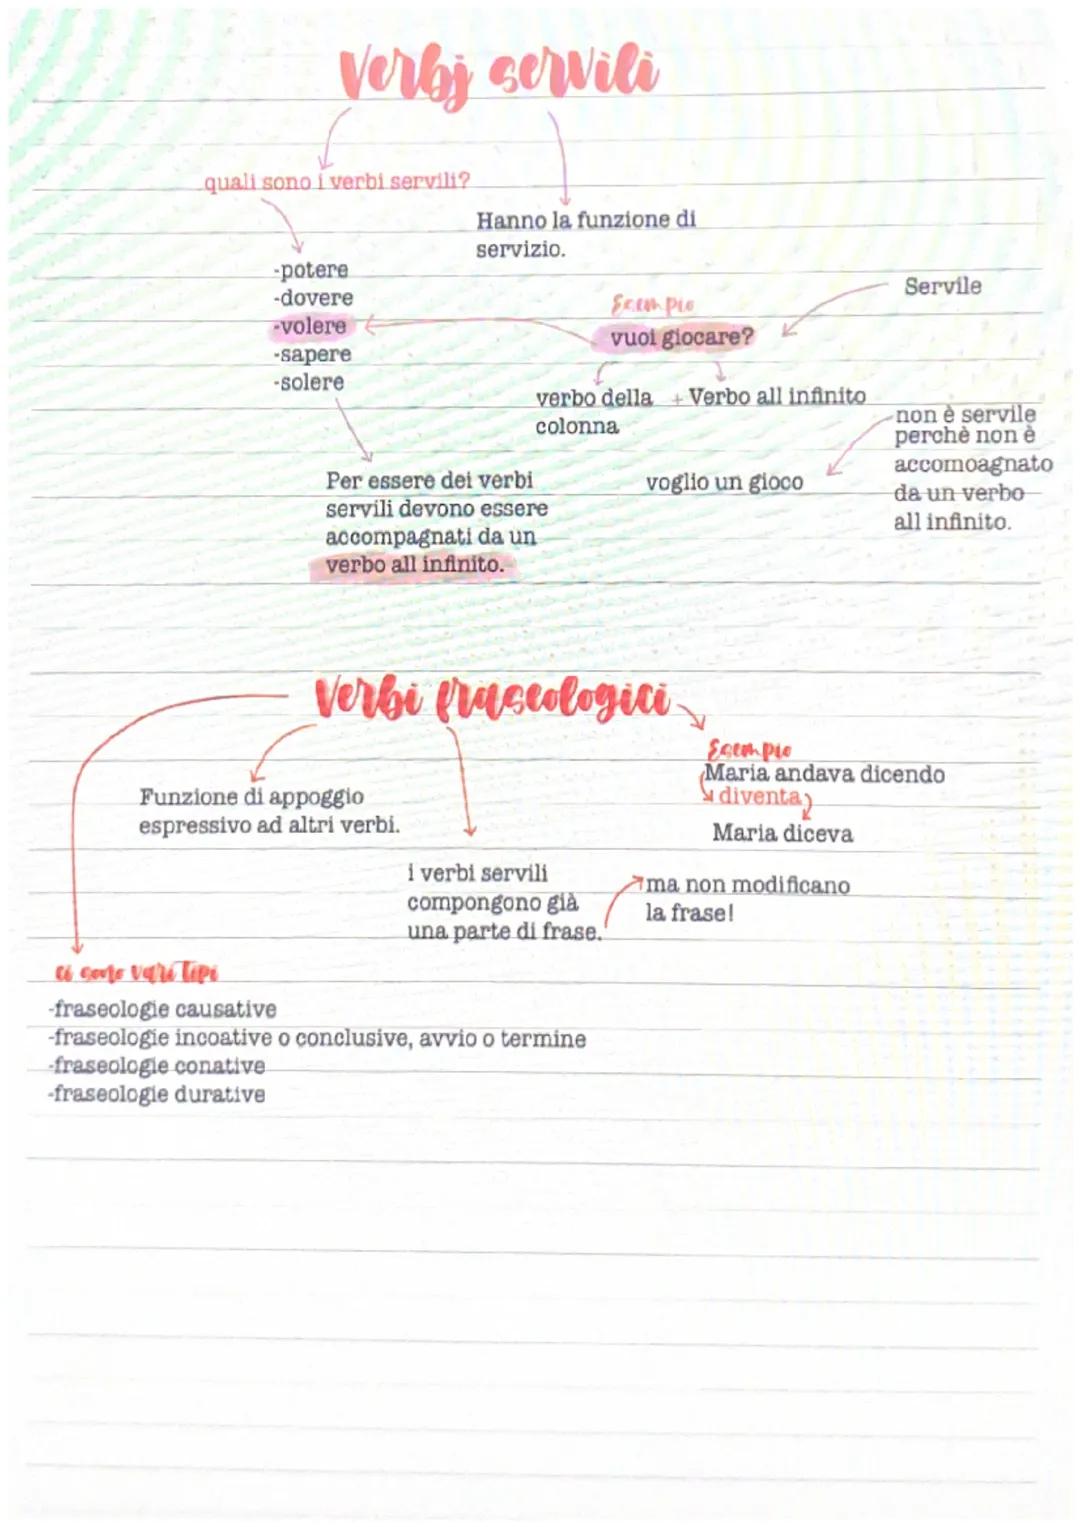 Verbj servili
quali sono i verbi servili?
Hanno la funzione di
servizio.
-potere
-dovere
-volere
-sapere
-solere
Servile
Esempio
vuoi giocare?
verbo della + Verbo all infinito
colonna
non è servile
perchè non è
accomoagnato
da un verbo
all infinito.
voglio un gioco
Per essere dei verbi
servili devono essere
accompagnati da un
verbo all infinito.
Verbi fraseologici
Esempio
Maria andava dicendo
diventa
Maria diceva
Funzione di appoggio
espressivo ad altri verbi.
i verbi servili
compongono già
una parte di frase.
ma non modificano
la frase!
ci sono vari tipi
-fraseologie causative
-fraseologie incoative o conclusive, avvio o termine
-fraseologie conative
-fraseologie durative